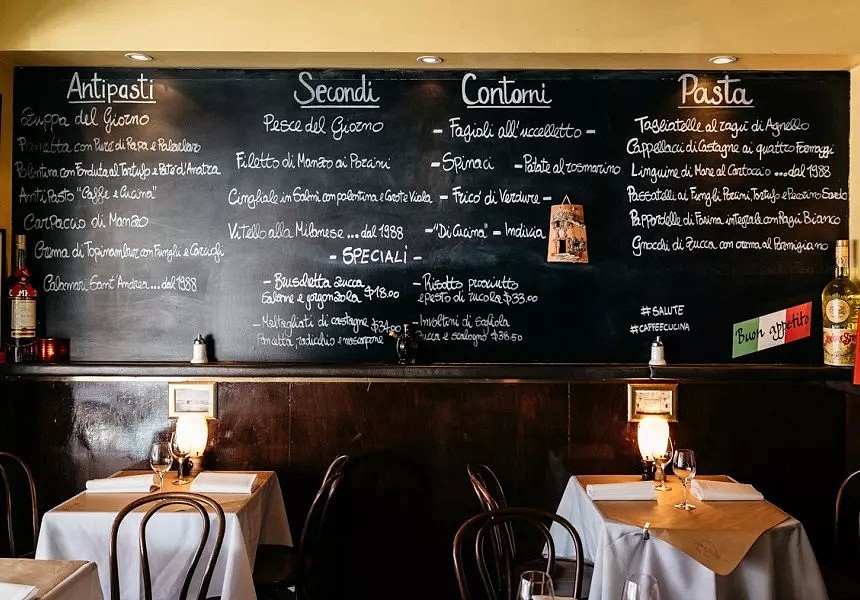 Antipasti
Zuppa del Giorno
Pancetta con Purè di Rapa e
Polentina con Fonduta al Tartufo e Patè d'Anatra
Anti Pasto "Caffe e Cucina"
Carpaccio di Manzo
Crema di Topinambur con Funghi e Carciofi
Calamari Sant'Andrea...dal 1988
Secondi
Pesce del Giorno
Filetto di Manzo ai Porcini
Cinghiale in Salmì con polentina e Carote Viola
Vitello alla Milanese ...dal 1988
Contorni
- Fagioli all'uccelletto -
- Spinaci - Patate al rosmarino
- Frico' di Verdure -
- "Di Cucina" - Indivia
Pasta
Tagliatelle al ragù di Agnello
Cappellacci di Castagne ai quattro Formaggi
Linguine di Mare al Cartoccio ...dal 1988
Passatelli ai Funghi Porcini, Tartufo e Pecorino Sardo
Pappardelle di Farina integrale con Ragù Bianco
Gnocchi di Zucca con crema al Parmigiano
- SPECIALI -
- Bruschetta zucca
Salame e gorgonzola $18.00
- Maltagliati di castagne $34.00
Pancetta, radicchio e mascarpone
- Risotto prosciutto
e pesto di rucola $33.00
- Involtini di sogliola
zucca e scalogno $38.50
#SALUTE
#CAFFEECUCINA
Buon appetito